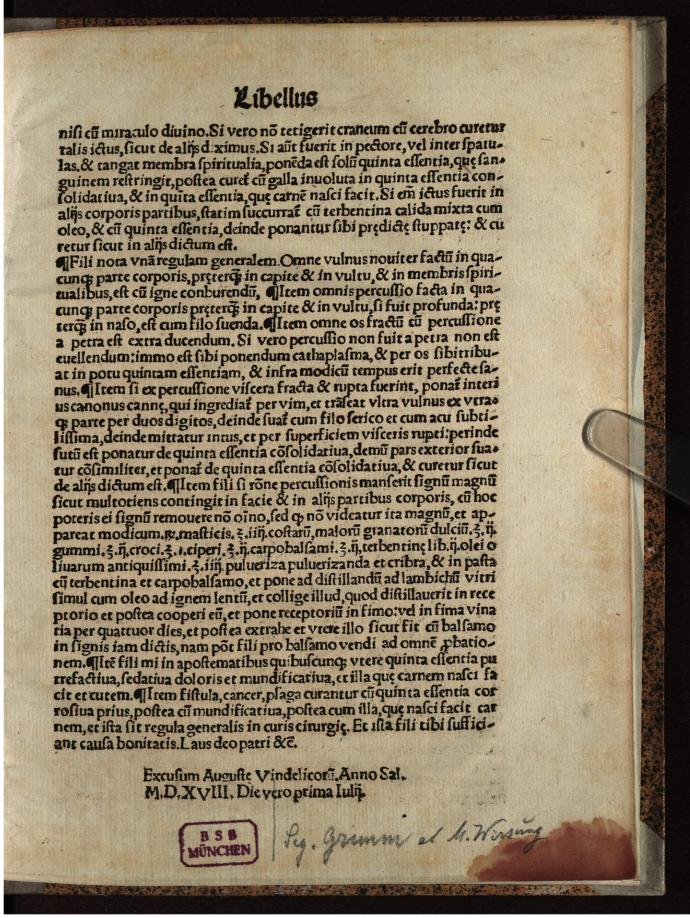 Libellus
nisi cū miraculo diuino.Si vero nō tetigerit craneum cū cerebro curetur
talis ictus,sicut de alijs diximus.Si aūt fuerit in pectore,vel inter spatu-
las.& tangat membra spiritualia,ponēda est solū quinta essentia,quę san-
guinem restringit,postea curet̄ cū galla inuoluta in quinta essentia con-
solidatiua,& in quīta essentia,quę carnē nasci facit.Si em̄ ictus fuerit in
alijs corporis partibus,statim succurrat̄ cū terbentina calida mixta cum
oleo,& cū quinta essentia,deinde ponantur sibi prędictę stuppatę: & cu
retur sicut in alijs dictum est.
¶Fili nota vnā regulam generalem.Omne vulnus nouiter factū in qua-
cunqꝫ parte corporis,pręterqꝫ in capite & in vultu,& in membris spiri-
tualibus,est cū igne conburendū, ¶Item omnis percussio facta in qua-
cunqꝫ parte corporis pręterqꝫ in capite & in vultu,si fuit profunda: prę
terqꝫ in naso,est cum filo suenda.¶Item omne os fractū cū percussione
a petra est extra ducendum. Si vero percussio non fuit a petra non est
euellendum:immo est sibi ponendum cathaplasma,& per os sibi tribu-
at in potu quintam essentiam, & infra modicū tempus erit perfecte sa-
nus.¶Item si ex percussione viscera fracta & rupta fuerint, ponat̄ interi
us canonus cannę,qui ingrediat̄ per vim,et trāseat vltra vulnus ex vtra-
qꝫ parte per duos digitos,deinde suat̄ cum filo serico et cum acu subti-
lissima,deinde mittatur intus,et per superficiem visceris rupti:perinde
sutū est ponatur de quinta essentia cōsolidatiua,demū pars exterior sua-
tur cōsimiliter,et ponat̄ de quinta essentia cōsolidatiua,& curetur sicut
de alijs dictum est.¶Item fili si rōne percussionis manserit signū magnū
sicut multotiens contingit in facie & in alijs partibus corporis, cū hoc
poteris ei signū remouere nō oīno,sed ꝙ nō videatur ita magnū,et ap-
pareat modicum.℞.masticis.℥.iiij.costarū,malorū granatorū dulciū.℥.ij.
gummi.℥.ij,croci.℥.i.ciperi.℥.ij.carpobalsami.℥.ij,terbentinę lib.ij.olei o
liuarum antiquissimi.℥.iiij.pulueriza puluerizanda et cribra,& in pasta
cū terbentina et carpobalsamo,et pone ad distillandū ad lambichū vitri
simul cum oleo ad ignem lentū,et collige illud,quod distillauerit in rece
ptorio et postea cooperi eū,et pone receptoriū in fimo:vel in fima vina
tia per quattuor dies,et postea extrahe et vtere illo sicut fit cū balsamo
in signis iam dictis,nam pōt fili pro balsamo vendi ad omnē ꝓbatio-
nem.¶Itē fili mi in apostematibus quibuscunqꝫ vtere quinta essentia pu
trefactiua,sedatiua doloris et mundificatiua,et illa quę carnem nasci fa
cit et cutem.¶Item fistula,cancer,plaga curantur cū quinta essentia cor
rosiua prius,postea cū mundificatiua,postea cum illa,quę nasci facit car
nem,et ista sit regula generalis in curis cirurgię. Et ista fili tibi suffici-
ant causa bonitatis.Laus deo patri &c̄.
Excusum Auguste Vindelicorū.Anno Sal.
M.D.XVIII. Die vero prima Iulij.
BSB
MÜNCHEN
Sig. Grimm et M. Wirsung